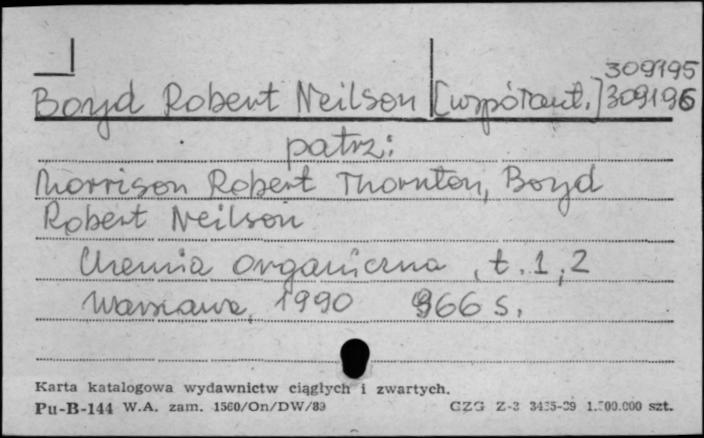 309195
Boyd Robert Neilson [współaut.] 309196
patrz:
Morrison Robert Thornton, Boyd
Robert Neilson
Chemia organiczna, t. 1, 2
Warszawa, 1990 966 s.
Karta katalogowa wydawnictw ciągłych i zwartych.
Pu-B-144 W.A. zam. 1560/On/DW/89 CZG Z-3 1.500.000 szt.